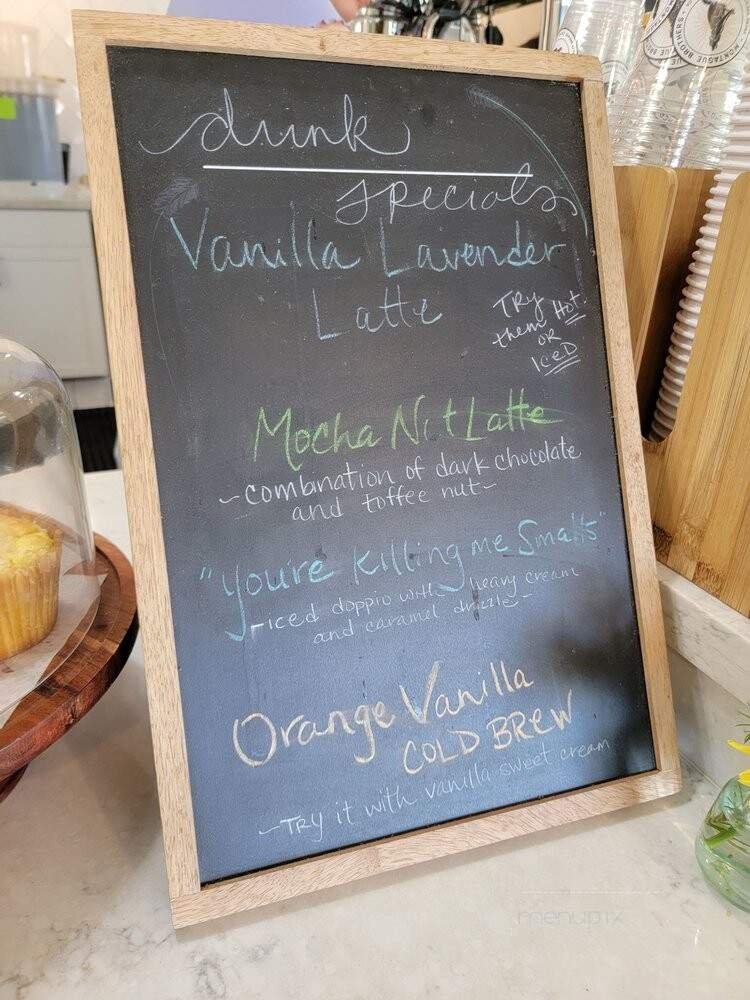 drink
specials
Vanilla Lavender
Latte
TRY
them Hot
OR
ICED
Mocha Nut Latte
~combination of dark chocolate
and toffee nut~
"You're killing me Smalls"
-iced doppio with heavy cream
and caramel drizzle-
Orange Vanilla
COLD BREW
~TRY it with vanilla sweet cream
MONTAGUE BROTHERS
menupix